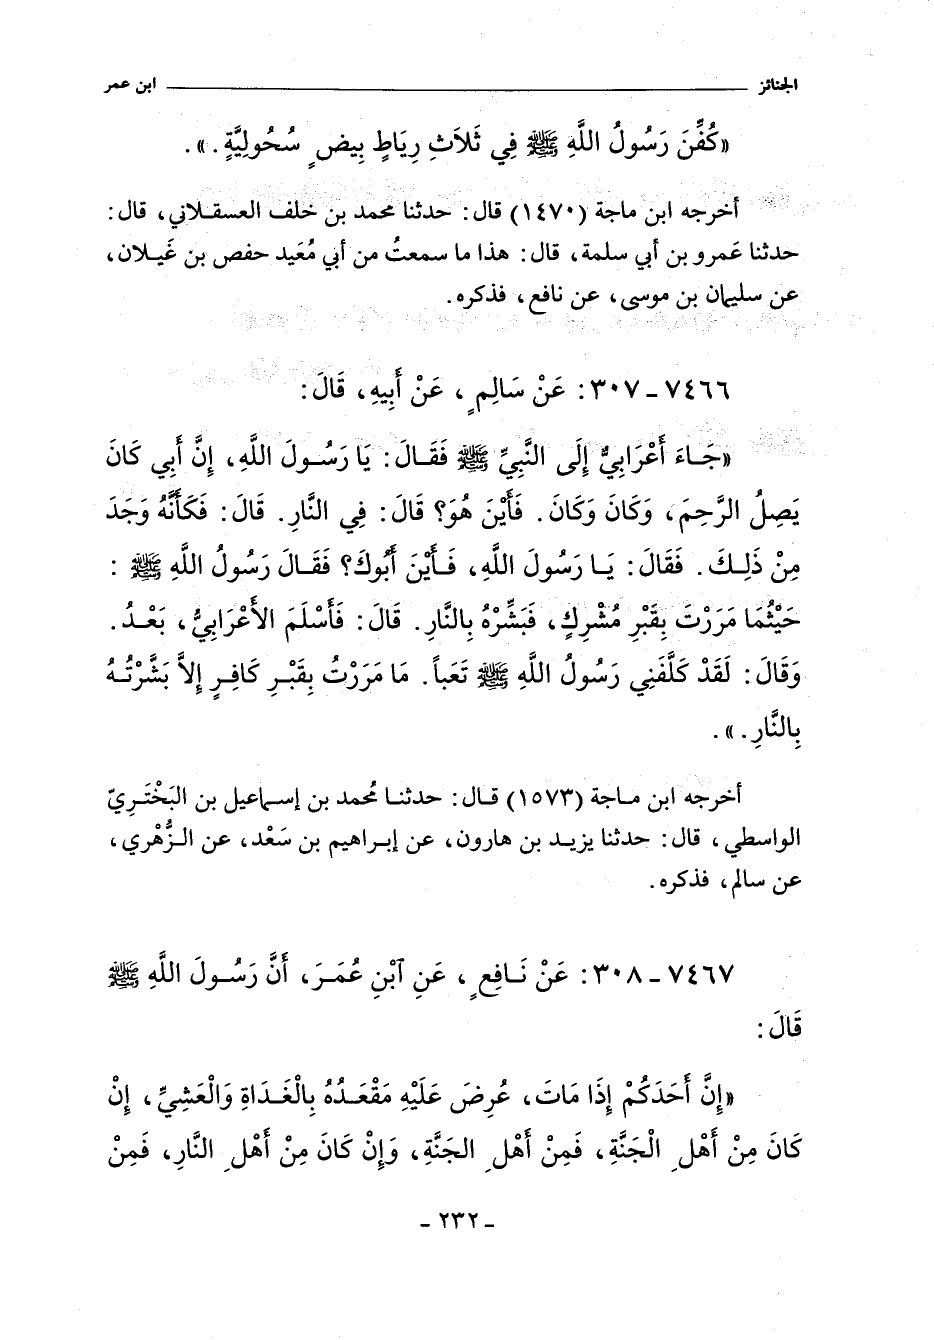 الجنائز ابن عمر
«كُفِّنَ رَسُولُ اللَّهِ ﷺ فِي ثَلاَثِ رِيَاطٍ بِيضٍ سُحُولِيَّةٍ.».
أخرجه ابن ماجة (١٤٧٠) قال: حدثنا محمد بن خلف العسقلاني، قال:
حدثنا عَمرو بن أبي سلمة، قال: هذا ما سمعتُ من أبي مُعَيد حفص بن غَيلان،
عن سليمان بن موسى، عن نافع، فذكره.
٧٤٦٦ - ٣٠٧: عَنْ سَالِمٍ، عَنْ أَبِيهِ، قَالَ:
«جَاءَ أَعْرَابِيٌّ إِلَى النَّبِيِّ ﷺ فَقَالَ: يَا رَسُولَ اللَّهِ، إِنَّ أَبِي كَانَ
يَصِلُ الرَّحِمَ، وَكَانَ وَكَانَ. فَأَيْنَ هُوَ؟ قَالَ: فِي النَّارِ. قَالَ: فَكَأَنَّهُ وَجَدَ
مِنْ ذَلِكَ. فَقَالَ: يَا رَسُولَ اللَّهِ، فَأَيْنَ أَبُوكَ؟ فَقَالَ رَسُولُ اللَّهِ ﷺ :
حَيْثُمَا مَرَرْتَ بِقَبْرِ مُشْرِكٍ، فَبَشِّرْهُ بِالنَّارِ. قَالَ: فَأَسْلَمَ الأَعْرَابِيُّ، بَعْدُ.
وَقَالَ: لَقَدْ كَلَّفَنِي رَسُولُ اللَّهِ ﷺ تَعَباً. مَا مَرَرْتُ بِقَبْرِ كَافِرٍ إِلاَّ بَشَّرْتُهُ
بِالنَّارِ.».
أخرجه ابن ماجة (١٥٧٣) قال: حدثنا مُحمد بن إسماعيل بن البَخْتَرِيّ
الواسطي، قال: حدثنا يزيد بن هارون، عن إبراهيم بن سَعْد، عن الزُّهْري،
عن سالم، فذكره.
٧٤٦٧ - ٣٠٨: عَنْ نَافِعٍ، عَنِ ٱبْنِ عُمَرَ، أَنَّ رَسُولَ اللَّهِ ﷺ
قَالَ:
«إِنَّ أَحَدَكُمْ إِذَا مَاتَ، عُرِضَ عَلَيْهِ مَقْعَدُهُ بِالْغَدَاةِ وَالْعَشِيِّ، إِنْ
كَانَ مِنْ أَهْلِ الْجَنَّةِ، فَمِنْ أَهْلِ الجَنَّةِ، وَإِنْ كَانَ مِنْ أَهْلِ النَّارِ، فَمِنْ
- ٢٣٢ -